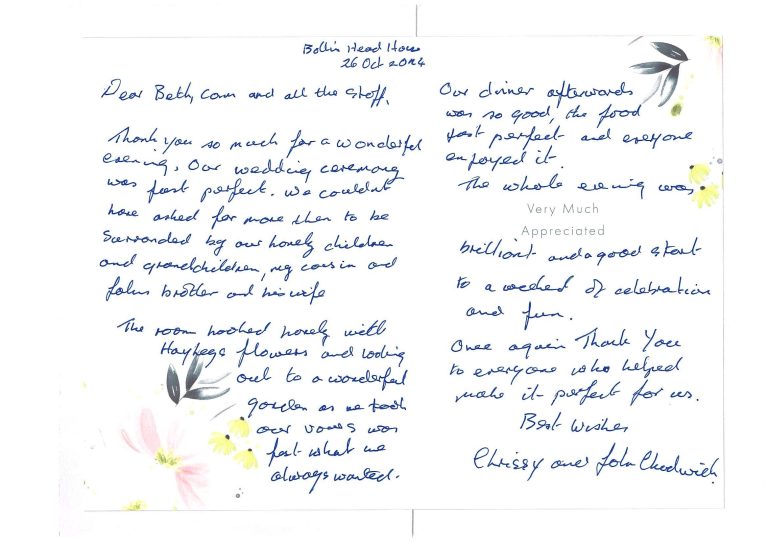 Bollin Head House
26 Oct 2024
Dear Beth, Conn and all the staff,
Thank you so much for a wonderful
evening. Our wedding ceremony
was just perfect. We couldn't
have asked for more then to be
surronded by our lovely children
and grandchildren, my cousin and
Johns brother and his wife
The room looked lovely with
flowers and looking
out to a wonderful
garden as we took
our vows was
just what we
always wanted.
Our dinner afterwards
was so good, the food
just perfect and everyone
enjoyed it.
The whole evening was
Very Much
Appreciated
brilliant and a good start
to a weekend of celebration
and fun.
Once again Thank You
to everyone who helped
make it perfect for us.
Best wishes
Chrissy and John Chadwick.